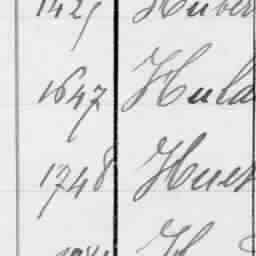 1425 Huber
1647 Hula
1748 Hues